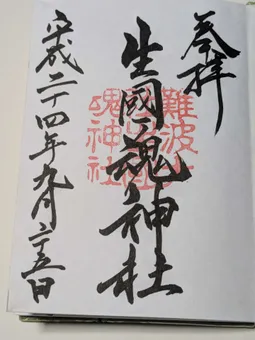 奉拝
生國魂神社
難波大
社生國
魂神社
平成二十四年九月二十五日